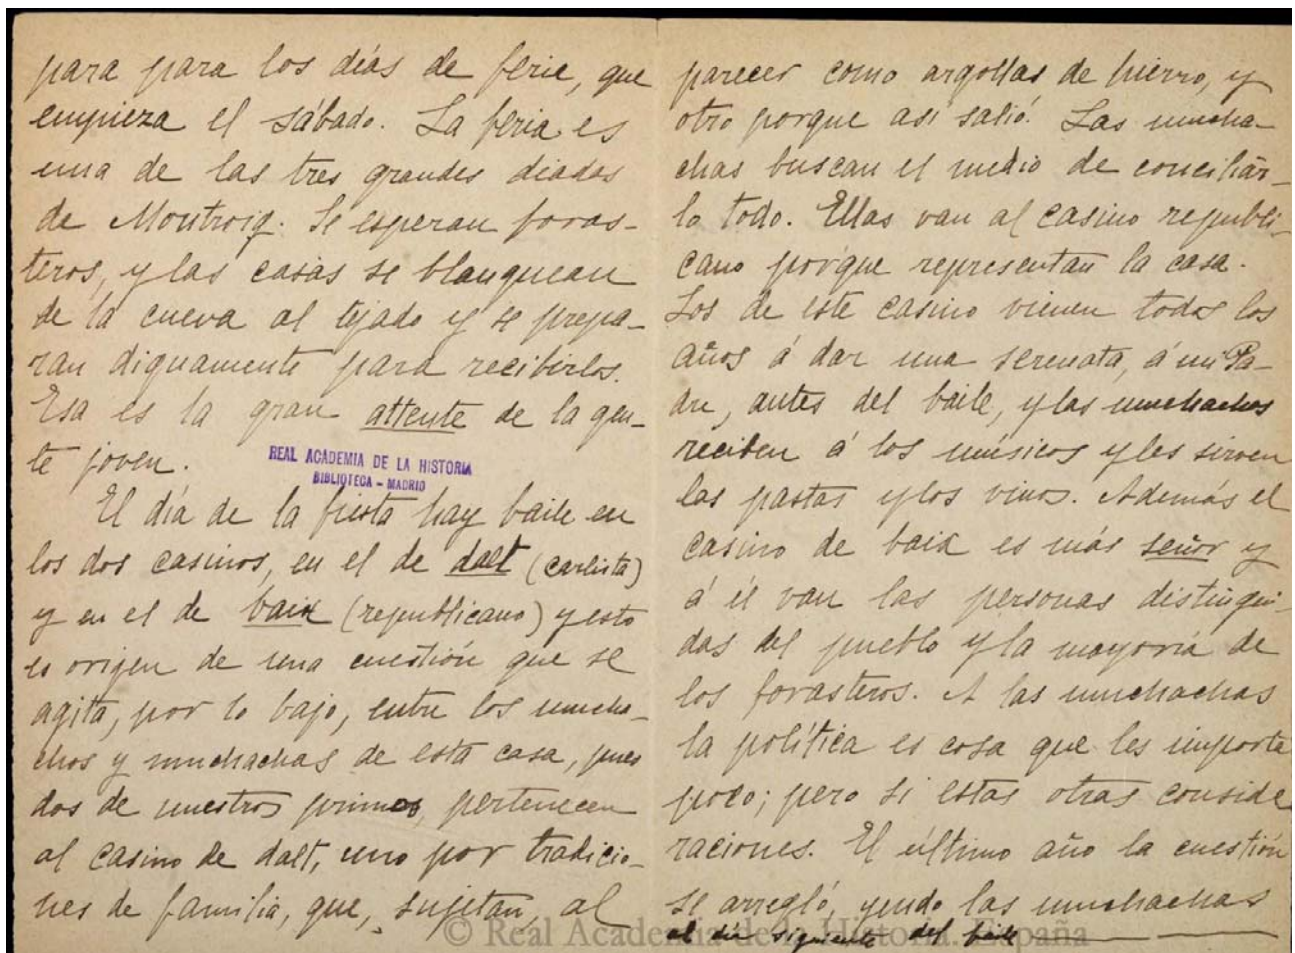 para para los días de ferie, que
empieza el sábado. La feria es
una de las tres grandes diadas
de Montroig. Se esperan foras-
teros, y las casas se blanquean
de la cueva al tejado y se prepa-
ran dignamente para recibirlos.
Esa es la gran attente de la gen-
te joven.
REAL ACADEMIA DE LA HISTORIA
BIBLIOTECA - MADRID
El día de la fiesta hay baile en
los dos casinos, en el de dalt (carlista)
y en el de baix (republicano) y esto
es orijen de una cuestión que se
agita, por lo bajo, entre los mucha-
chos y muchachas de esta casa, pues
dos de nuestros primos, pertenecen
al casino de dalt, uno por tradicio-
nes de familia, que, sujetan, al
parecer como argollas de hierro, y
otro porque así salió. Las mucha-
chas buscan el medio de conciliar-
lo todo. Ellas van al casino republi-
cano porque representan la casa.
Los de este casino vienen todos los
años á dar una serenata, á mi Pa-
dre, antes del baile, y las muchachas
reciben á los músicos y les sirven
las pastas y los vinos. Además el
casino de baix es más señor y
á él van las personas distingui-
das del pueblo y la mayoría de
los forasteros. A las muchachas
la política es cosa que les importa
poco; pero si estas otras conside
raciones. El último año la cuestión
se arregló, yendo las muchachas
al día siguiente del baile
© Real Academia de la Historia. España